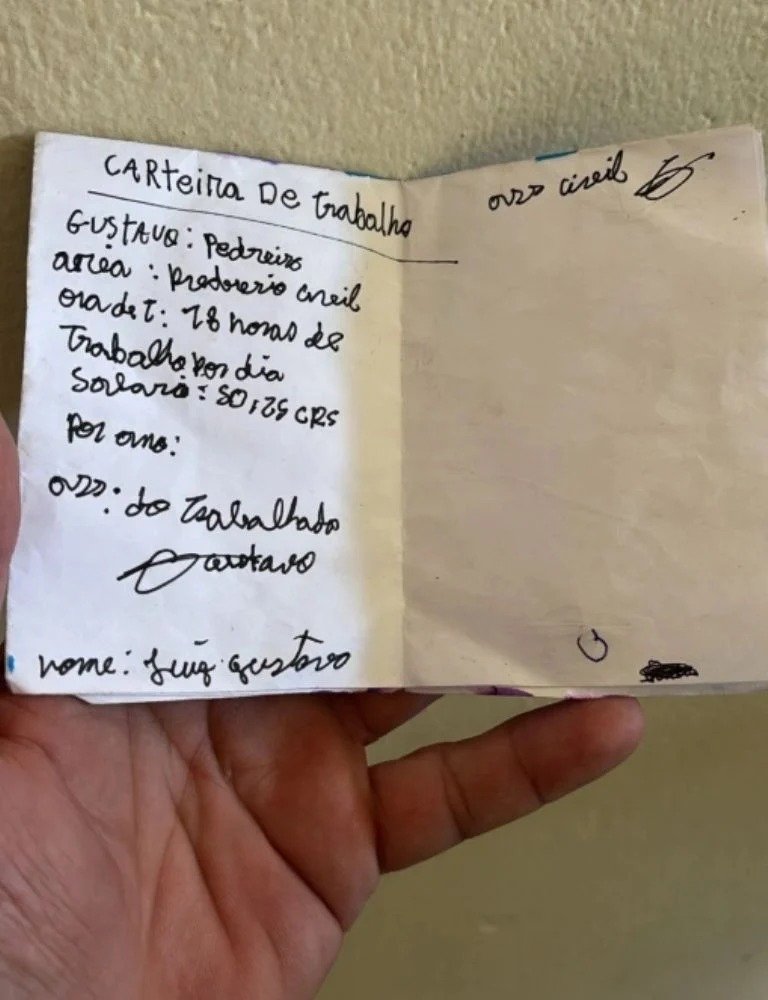 CARteira De trabalho
GUSTAVO: Pedreiro
area : Predorerio cireil
ora de T: 18 horas de
Trabalho por dia
Salario: 50,25 CRS
Por ano:
ass: do Trabalhado
Gustavo
nome: Luiz gustavo
ass cireil